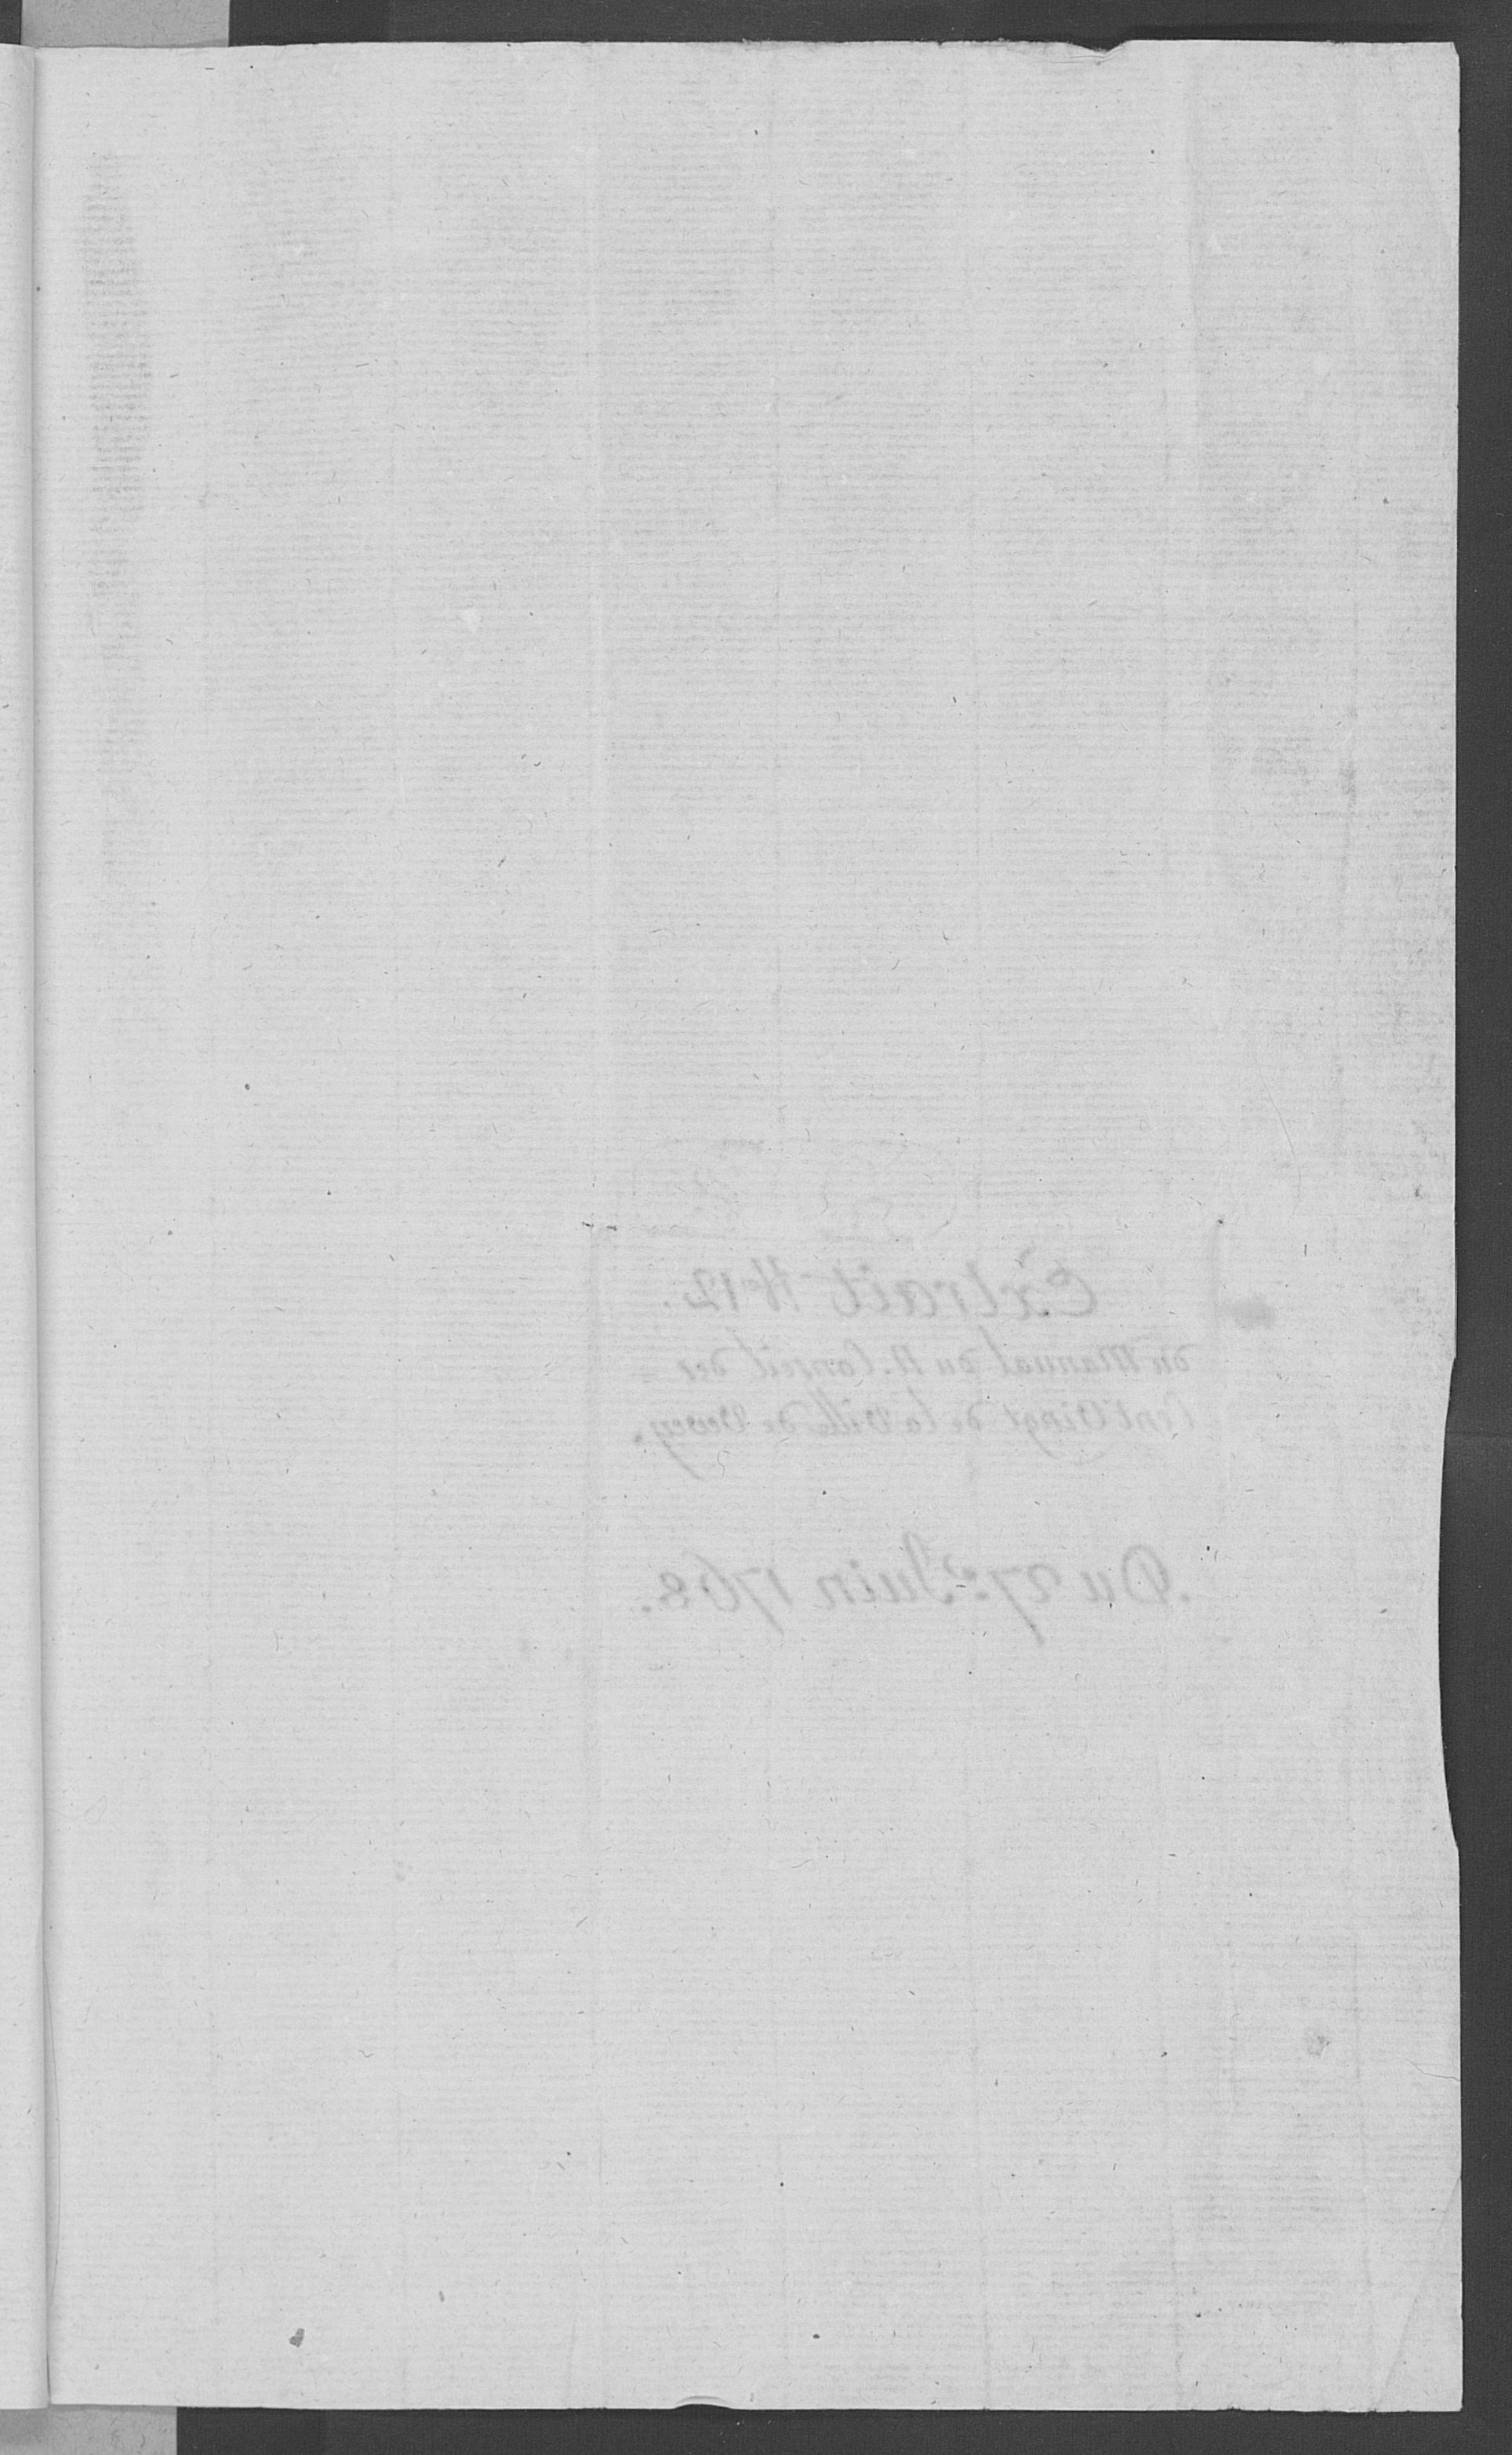 Extrait N° 12.
du Manual du N. Conseil des =
Cent Vingt de la Ville de Vevey.
Du 27e Juin 1768.